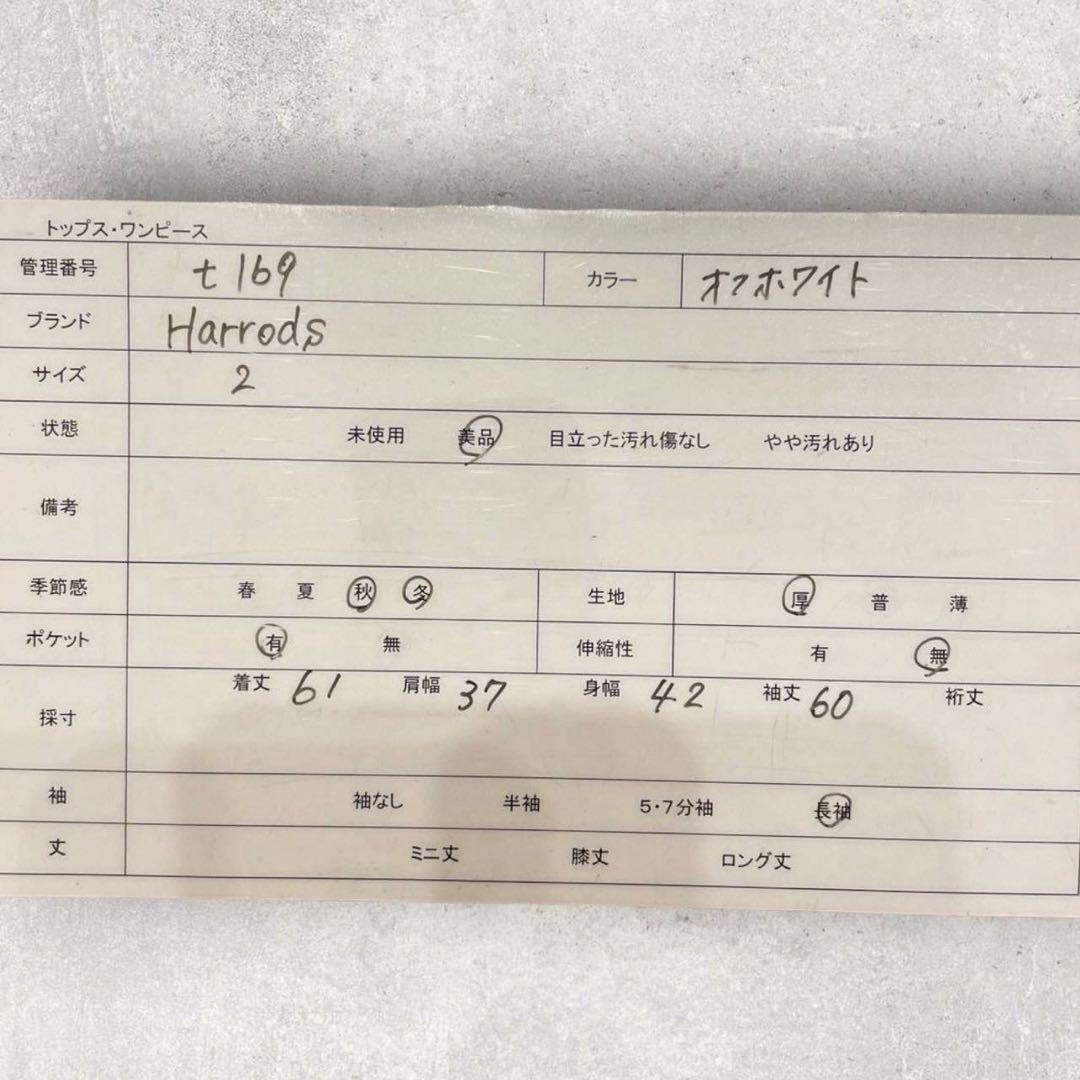 トップス・ワンピース
管理番号 t169 カラー オフホワイト
ブランド Harrods
サイズ 2
状態 未使用 美品 目立った汚れ傷なし やや汚れあり
備考
季節感 春 夏 秋 冬 生地 厚 普 薄
ポケット 有 無 伸縮性 有 無
採寸 着丈 61 肩幅 37 身幅 42 袖丈 60 裄丈
袖 袖なし 半袖 5・7分袖 長袖
丈 ミニ丈 膝丈 ロング丈